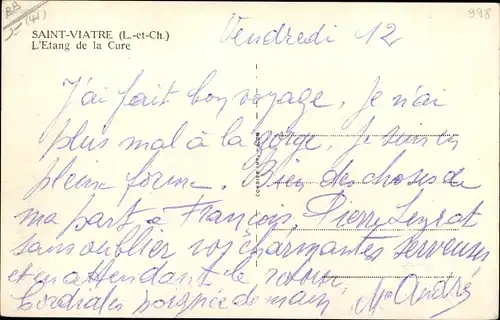 BB
(41)
998
SAINT-VIATRE (L.-et-Ch.)
L'Etang de la Cure
Vendredi 12
J'ai fait bon voyage, je n'ai
plus mal à la gorge. Je suis en
pleine forme. Bien des choses de
ma part à François, Pierre
sans oublier vos charmantes serveuses
et en attendant le retour
Cordiales poignées de main André